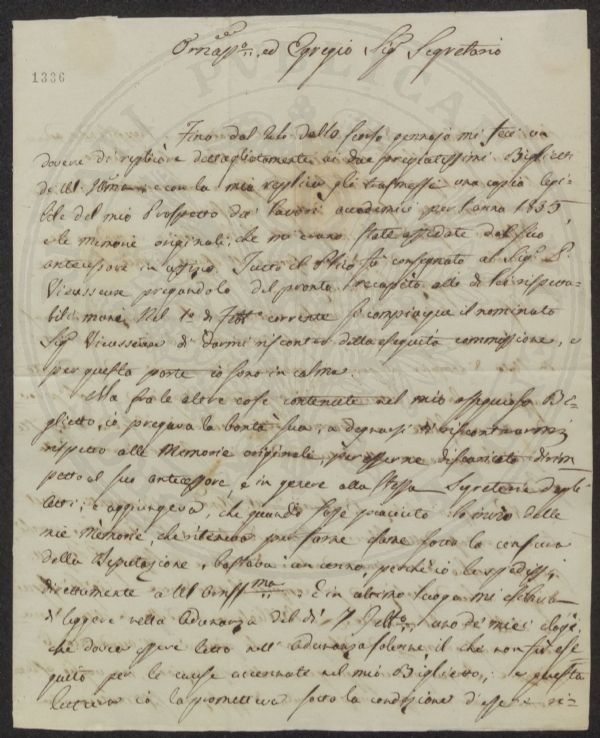 Ornatiss.o ed Egregio Sig.r Segretario
1336
Fino dal dello scorso gennajo mi feci un
dovere di replicare dettagliatamente ai due pregiatissimi Biglietti
di e con la mia replica gli trasmessi una copia legi-
bile del mio Prospetto dei lavori accademici per l'anno 1835,
e le memorie originali, che mi erano state affidate dal suo
antecessore in Tutto il fu consegnato al Sig.r
Vieusseux pregandolo del pronto recapito alle di lei rispetta-
bili mani. Nel 1.o di Febb.o corrente si compiacque il nominato
Sig.r Vieusseux di darmi riscontro della eseguita commissione, e
per questa parte io sono in calma.
Ma fra le altre cose contenute nel mio ossequioso Bi-
glietto, io pregava la bontà sua, a degnarsi di riscontrarmi
rispetto alle Memorie originali, per esserne discaricato dirim
petto al suo antecessore, e in genere alla stessa Segreteria degli
atti; e aggiungeva, che quando fosse piaciuto l'invio delle
mie Memorie, che riteneva per farne sotto la censura
della Deputazione, bastava un cenno, perchè io le spedissi
direttamente a E in ultimo luogo mi
di leggere nella Adunanza del dì 7 Febb.o uno de' miei elogi,
che dovea essere letto nell'Adunanza solenne, il che non fu ese
guito per le cause accennate nel mio Biglietto, e questa
lettura io la prometteva sotto la condizione d'essere ri-